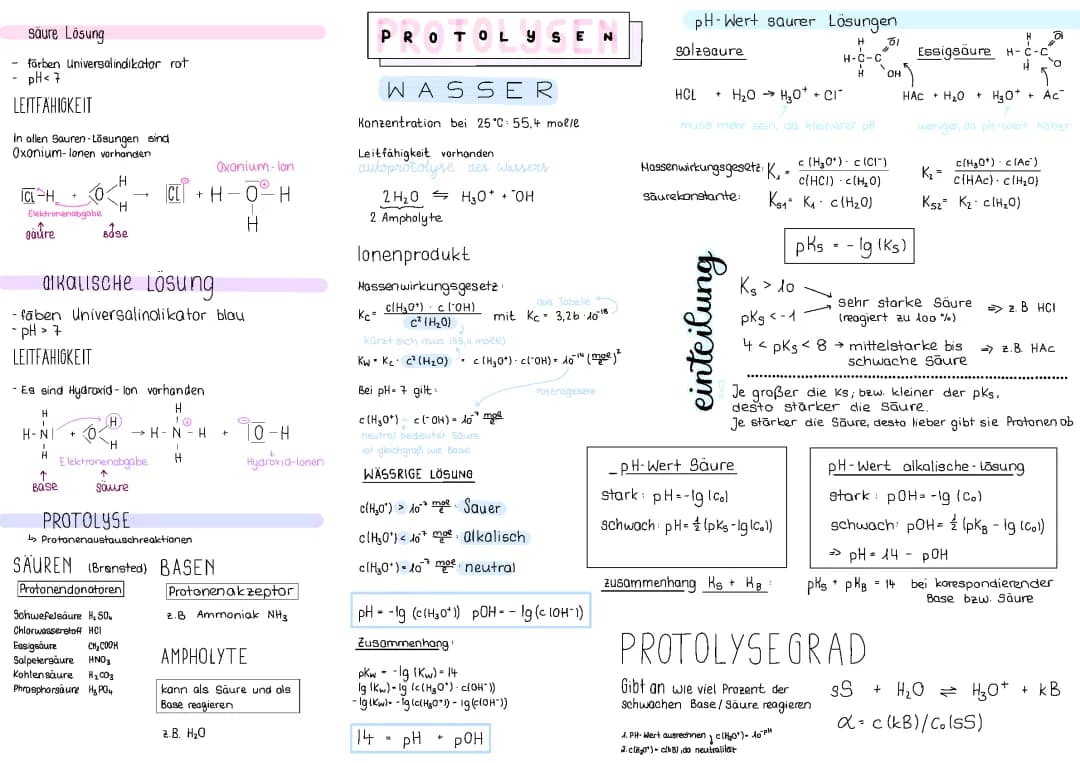 säure Lösung
- färben Universalindikator rot
- pH < 7
LEITFÄHIGKEIT
In allen Sauren-Lösungen sind
Oxonium-Ionen vorhanden
Oxonium-Ion
|Cl-H + O H H → |Cl|⁻ + H-O⊕-H H
Elektronenabgabe
säure Base
alkalische Lösung
- fäben Universalindikator blau
- pH > 7
LEITFÄHIGKEIT
- Es sind Hydroxid-Ion vorhanden
H H-N| H + O H H → H H-N⊕-H H + ⊖|O-H
Elektronenabgabe Hydroxid-Ionen
Base Säure
PROTOLYSE
↳ Protonenaustauschreaktionen
SÄUREN (Brønsted) BASEN
Protonendonatoren Protonenakzeptor
Schwefelsäure H₂SO₄
Chlorwasserstoff HCl
Essigsäure CH₃COOH
Salpetersäure HNO₃
Kohlensäure H₂CO₃
Phosphorsäure H₃PO₄
z.B Ammoniak NH₃
AMPHOLYTE
kann als Säure und als
Base reagieren
z.B. H₂O
PROTOLYSEN
WASSER
Konzentration bei 25°C: 55,4 mol/l
Leitfähigkeit vorhanden
autoprotolyse des Wassers
2 H₂O ⇌ H₃O⁺ + ⁻OH
2 Ampholyte
Ionenprodukt
Massenwirkungsgesetz:
aus Tabelle
Kc = c(H₃O⁺) · c(⁻OH) / c²(H₂O) mit Kc = 3,26 · 10⁻¹⁸
kürzt sich raus (55,4 mol/l)
Kw = Kc · c²(H₂O) = c(H₃O⁺) · c(⁻OH) = 10⁻¹⁴ (mol/l)²
Bei pH = 7 gilt:
c(H₃O⁺) = c(⁻OH) = 10⁻⁷ mol/l
neutral bedeutet Säure
ist gleichgroß wie Base
WÄSSRIGE LÖSUNG
c(H₃O⁺) > 10⁻⁷ mol/l : Sauer
c(H₃O⁺) < 10⁻⁷ mol/l : alkalisch
c(H₃O⁺) = 10⁻⁷ mol/l : neutral
pH = -lg (c(H₃O⁺)) pOH = - lg (c(OH⁻))
Zusammenhang:
pKw = -lg (Kw) = 14
lg (Kw) = lg (c(H₃O⁺) · c(OH⁻))
-lg(Kw) = -lg(c(H₃O⁺)) - lg(c(OH⁻))
14 = pH + pOH
pH-Wert saurer Lösungen
salzsaure
H H-C-C Ol OH H
Essigsäure
H H-C-C Ol O H
HCL + H₂O → H₃O⁺ + Cl⁻
HAc + H₂O + H₃O⁺ + Ac⁻
muss mehr sein, da kleinerer pH
weniger, da pH-wert höher
Massenwirkungsgesetz: K₁ = c(H₃O⁺) · c(Cl⁻) / c(HCl) · c(H₂O)
K₂ = c(H₃O⁺) · c(Ac⁻) / c(HAc) · c(H₂O)
säurekonstante: Ks₁ = K₁ · c(H₂O)
Ks₂ = K₂ · c(H₂O)
pKs = - lg (Ks)
einteilung
Ks > 10
pKs < -1
sehr starke Säure
(reagiert zu 100 %)
⇒ z.B HCl
4 < pKs < 8 → mittelstarke bis
schwache Säure
⇒ z.B. HAc
Je großer die Ks, bzw. kleiner der pKs,
desto stärker die Säure.
Je stärker die Säure, desto lieber gibt sie Protonen ab
pH-Wert Säure
stark: pH = -lg (c₀)
schwach: pH = ½ (pKs - lg (c₀))
pH-Wert alkalische-Lösung
stark: pOH = -lg (c₀)
schwach: pOH = ½ (pKB - lg (c₀))
⇒ pH = 14 - pOH
zusammenhang Ks + KB :
pKs + pKB = 14 bei korespondierender
Base bzw. Säure
PROTOLYSEGRAD
Gibt an wie viel Prozent der
schwachen Base/Säure reagieren
1. PH-Wert ausrechnen, c(H₃O⁺) = 10⁻ᵖᴴ
2. c(H₃O⁺) = c(kB), da neutralität
sS + H₂O ⇌ H₃O⁺ + kB
α = c(kB)/C₀(sS)